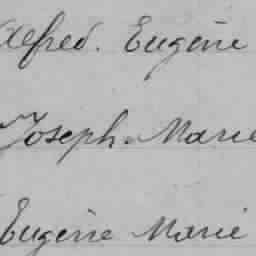 Alfred. Eugène
Joseph-Marie
Eugène Marie